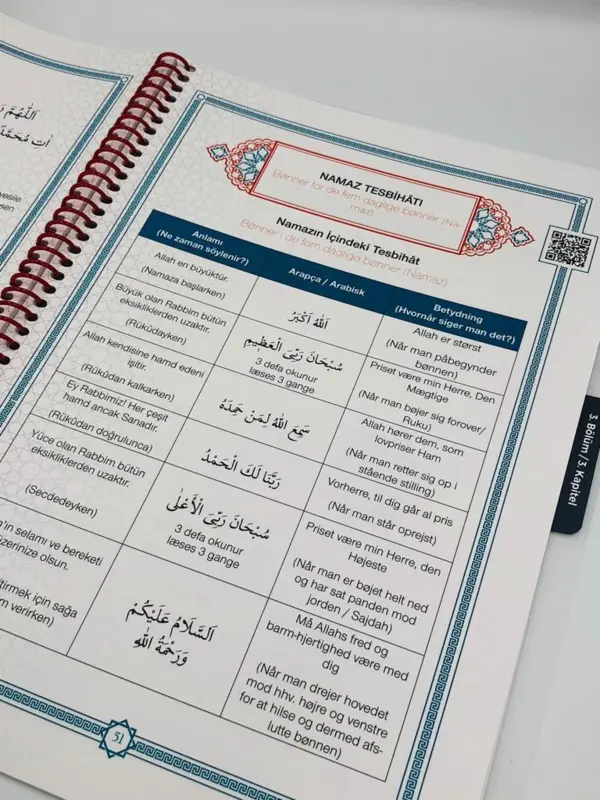 اَللّٰهُمَّ
اٰتِ مُحَمَّدً
NAMAZ TESBİHÂTI
Bønner for de fem daglige bønner (Na-
maz)
Namazın İçindeki Tesbihât
Bønner i de fem daglige bønner (Namaz)
Anlamı
(Ne zaman söylenir?)
Arapça / Arabisk
Betydning
(Hvornår siger man det?)
Allah en büyüktür.
(Namaza başlarken)
اَللّٰهُ اَكْبَرُ
Allah er størst
(Når man påbegynder
bønnen)
Büyük olan Rabbim bütün
eksikliklerden uzaktır.
(Rükûdayken)
سُبْحَانَ رَبِّىَ الْعَظِيمِ
3 defa okunur
læses 3 gange
Priset være min Herre, Den
Mæglige
(Når man bøjer sig forover/
Ruku)
Allah kendisine hamd edeni
işitir.
(Rükûdan kalkarken)
سَمِعَ اللّٰهُ لِمَنْ حَمِدَهُ
Allah hører dem, som
lovpriser Ham
(Når man retter sig op i
stående stilling)
Ey Rabbimiz! Her çeşit
hamd ancak Sanadır.
(Rükûdan doğrulunca)
رَبَّنَا لَكَ الْحَمْدُ
Vorherre, til dig går al pris
(Når man står oprejst)
Yüce olan Rabbim bütün
eksikliklerden uzaktır.
(Secdedeyken)
سُبْحَانَ رَبِّىَ الْأَعْلٰى
3 defa okunur
læses 3 gange
Priset være min Herre, den
Højeste
(Når man er bøjet helt ned
og har sat panden mod
jorden / Sajdah)
'ın selamı ve bereketi
üzerinize olsun.
için sağa
verirken)
اَلسَّلَامُ عَلَيْكُمْ
وَرَحْمَةُ اللّٰهِ
Må Allahs fred og
barm-hjertighed være med
dig
(Når man drejer hovedet
mod hhv. højre og venstre
for at hilse og dermed afs-
lutte bønnen)
51
3. Bölüm / 3. Kapitel